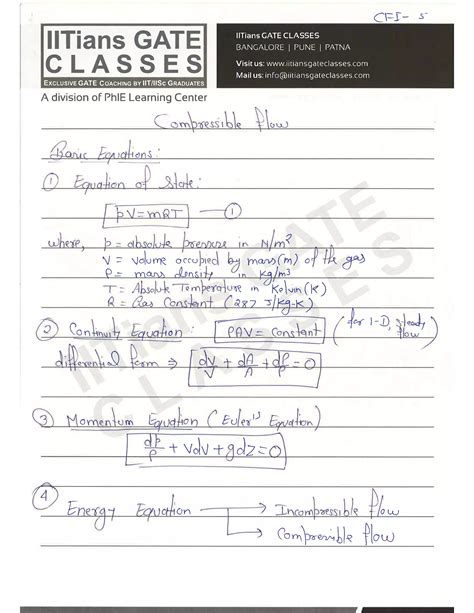 CFI-5
IITians GATE
CLASSES
EXCLUSIVE GATE COACHING BY IIT/IISC GRADUATES
A division of PhIE Learning Center
IITians GATE CLASSES
BANGALORE | PUNE | PATNA
Visit us: www.iitiansgateclasses.com
Mail us: info@iitiansgateclasses.com
Compressible flow
Basic Equations:
① Equation of State:
pV=mRT — ①
where, p = absolute pressure in N/m²
V = volume occupied by mass(m) of the gas
ρ = mass density in kg/m3
T = Absolute Temperature in Kelvin(K)
R = Gas Constant (287 J/kg-K)
② Continuity Equation: ρAV = constant (for 1-D, steady flow)
differential form ⇒ dV/V + dA/A + dρ/ρ = 0
③ Momentum Equation (Euler's Equation)
dp/ρ + VdV + gdz = 0
④ Energy Equation → Incompressible flow
→ Compressible flow
IITians GATE
CLASSES